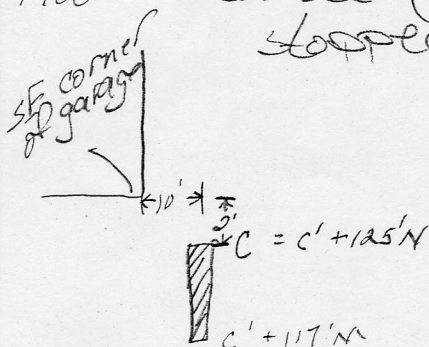 stopped
SE corner
of garage
10'
2'
C = C' + 125' N
C' + 117' N